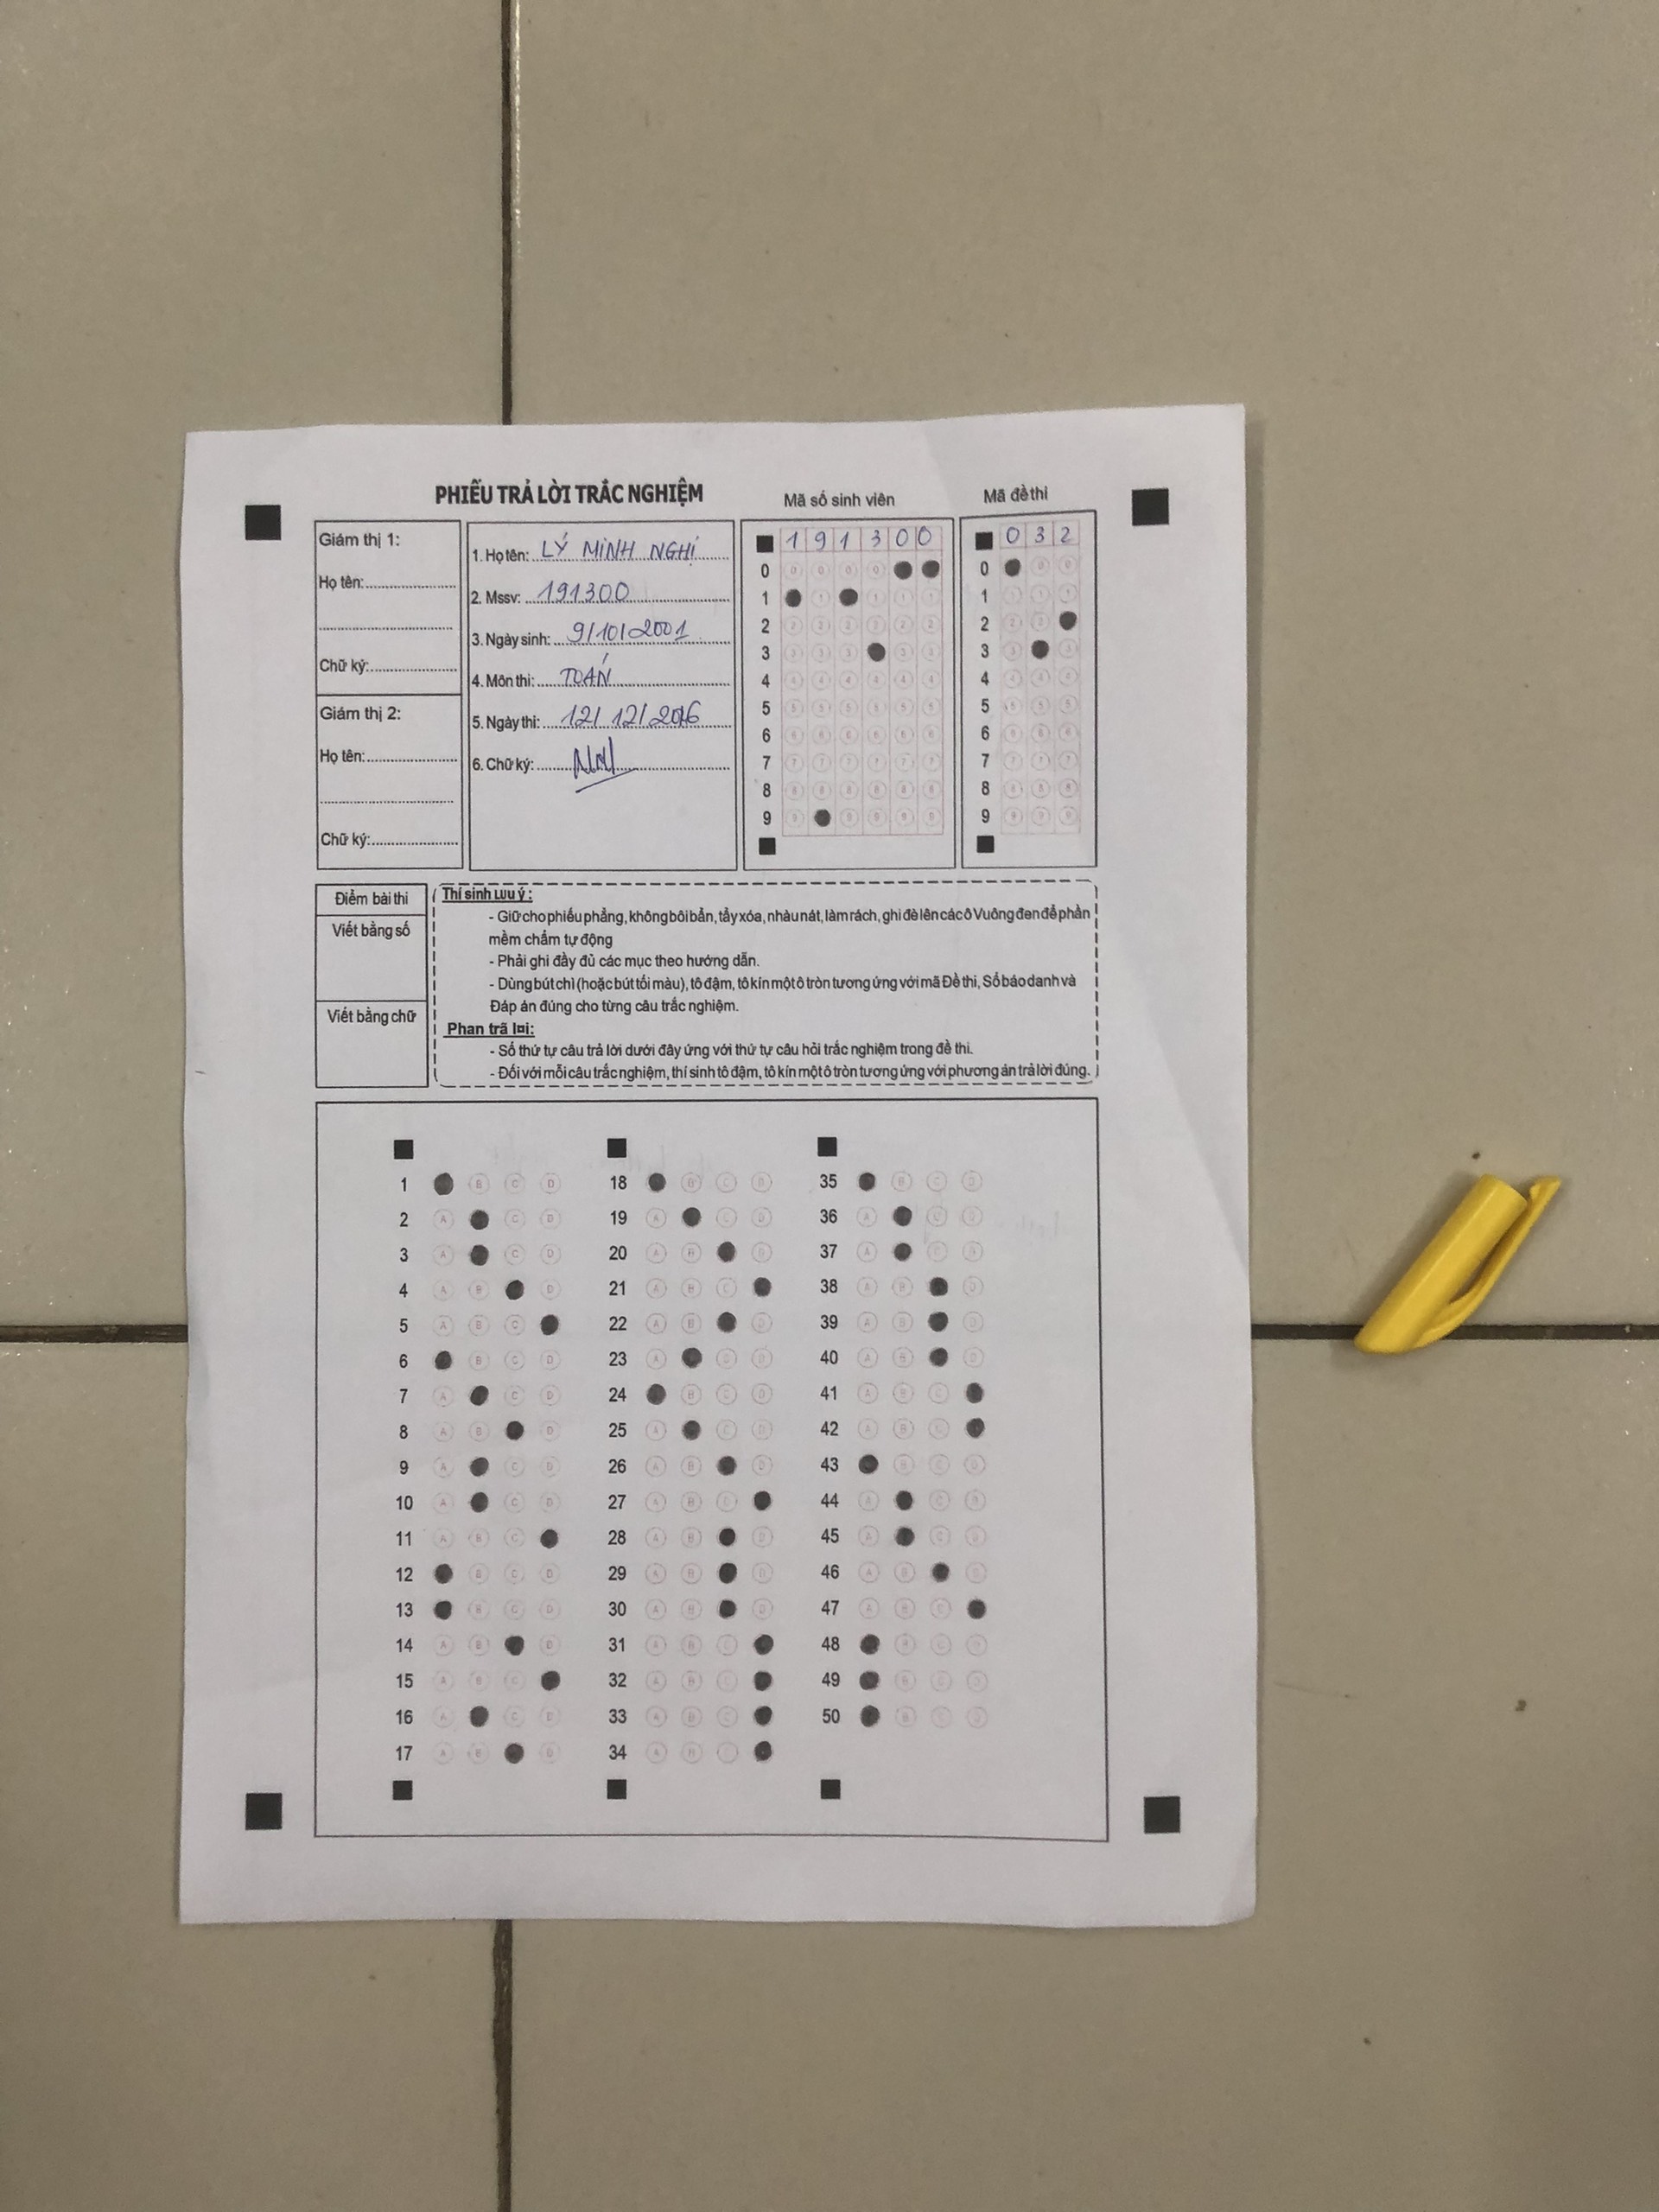 PHIẾU TRẢ LỜI TRẮC NGHIỆM
Giám thị 1:
Họ tên:
Chữ ký:
Giám thị 2:
Họ tên:
Chữ ký:
1. Họ tên: LÝ MINH NGHI
2. Mssv: 191300
3. Ngày sinh: 9/10/2001
4. Môn thi: TOÁN
5. Ngày thi: 12/12/2016
6. Chữ ký:
Mã số sinh viên
1 9 1 3 0 0
0
1
2
3
4
5
6
7
8
9
Mã đề thi
0 3 2
0
1
2
3
4
5
6
7
8
9
Điểm bài thi
Viết bằng số
Viết bằng chữ
Thí sinh Lưu ý :
- Giữ cho phiếu phẳng, không bôi bẩn, tẩy xóa, nhàu nát, làm rách, ghi đè lên các ô Vuông đen để phần
mềm chấm tự động
- Phải ghi đầy đủ các mục theo hướng dẫn.
- Dùng bút chì (hoặc bút tối màu), tô đậm, tô kín một ô tròn tương ứng với mã Đề thi, Số báo danh và
Đáp án đúng cho từng câu trắc nghiệm.
Phan trã l¤i:
- Số thứ tự câu trả lời dưới đây ứng với thứ tự câu hỏi trắc nghiệm trong đề thi.
- Đối với mỗi câu trắc nghiệm, thí sinh tô đậm, tô kín một ô tròn tương ứng với phương án trả lời đúng.
1 B C D
2 A C D
3 A C D
4 A B D
5 A B C
6 B C D
7 A C D
8 A B D
9 A C D
10 A C D
11 A B C
12 B C D
13 B C D
14 A B D
15 A B C
16 A C D
17 A B D
18 B C D
19 A C D
20 A B D
21 A B C
22 A B D
23 A C D
24 B C D
25 A C D
26 A B D
27 A B C
28 A B D
29 A B D
30 A B D
31 A B C
32 A B C
33 A B C
34 A B C
35 B C D
36 A C D
37 A C D
38 A B D
39 A B D
40 A B D
41 A B C
42 A B C
43 B C D
44 A C D
45 A C D
46 A B D
47 A B C
48 B C D
49 B C D
50 B C D